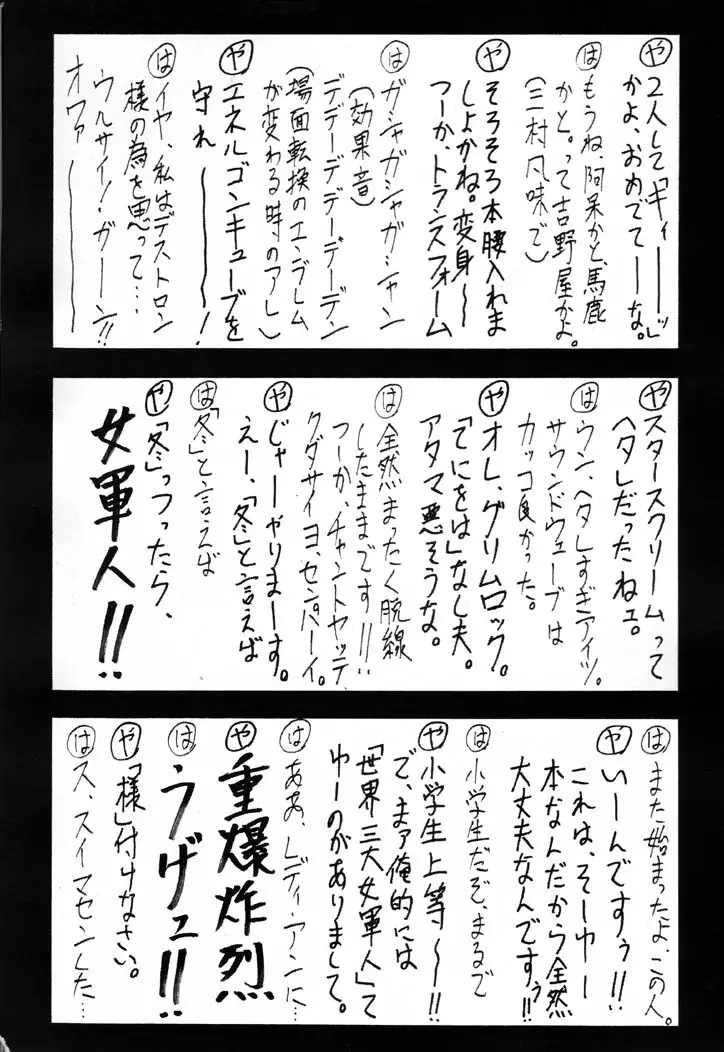 や 2人して「ギィーーッ」
かよ、おめでてーーな。
は もうね、阿呆かと、馬鹿
かと。って吉野屋かよ。
(三村風味で)
や そろそろ本腰入れま
しょかね。変身〜
つーか、トランスフォーム
は ガシャガシャガシャン
(効果音)
デデデーデデデーデーデン
(場面転換のエンブレム
が変わる時のアレ)
や エネルゴンキューブを
守れーーーー!
は イヤ、私はデストロン
様の為を思って…
ウルサイ!ガーン!!
オワァーーーー
や スタースクリームって
ヘタレだったねェ。
は ウン、ヘタレすぎアイツ。
サウンドウェーブは
カッコ良かった。
や オレ、グリムロック。
「てにをは」なし夫。
アタマ悪そうな。
は 全然まったく脱線
したままです!!
つーか、チャントヤッテ
クダサイヨ、センパーイ。
や じゃーやりまーす。
えー、「冬」と言えば
は 「冬」と言えば
や 「冬」っつったら、
女軍人!!
は また始まったよ、この人。
や いーんですぅ!!
これは、そーゆー
本なんだから全然
大丈夫なんですぅ!!
は 小学生だぞ、まるで
や 小学生上等〜!!
で、まァ俺的には
「世界三大女軍人」て
ゆーのがありまして。
は ああ、レディ・アンに…
や 重爆炸烈
は うげェ!!
や 「様」付けなさい。
は ス、スイマセンした…